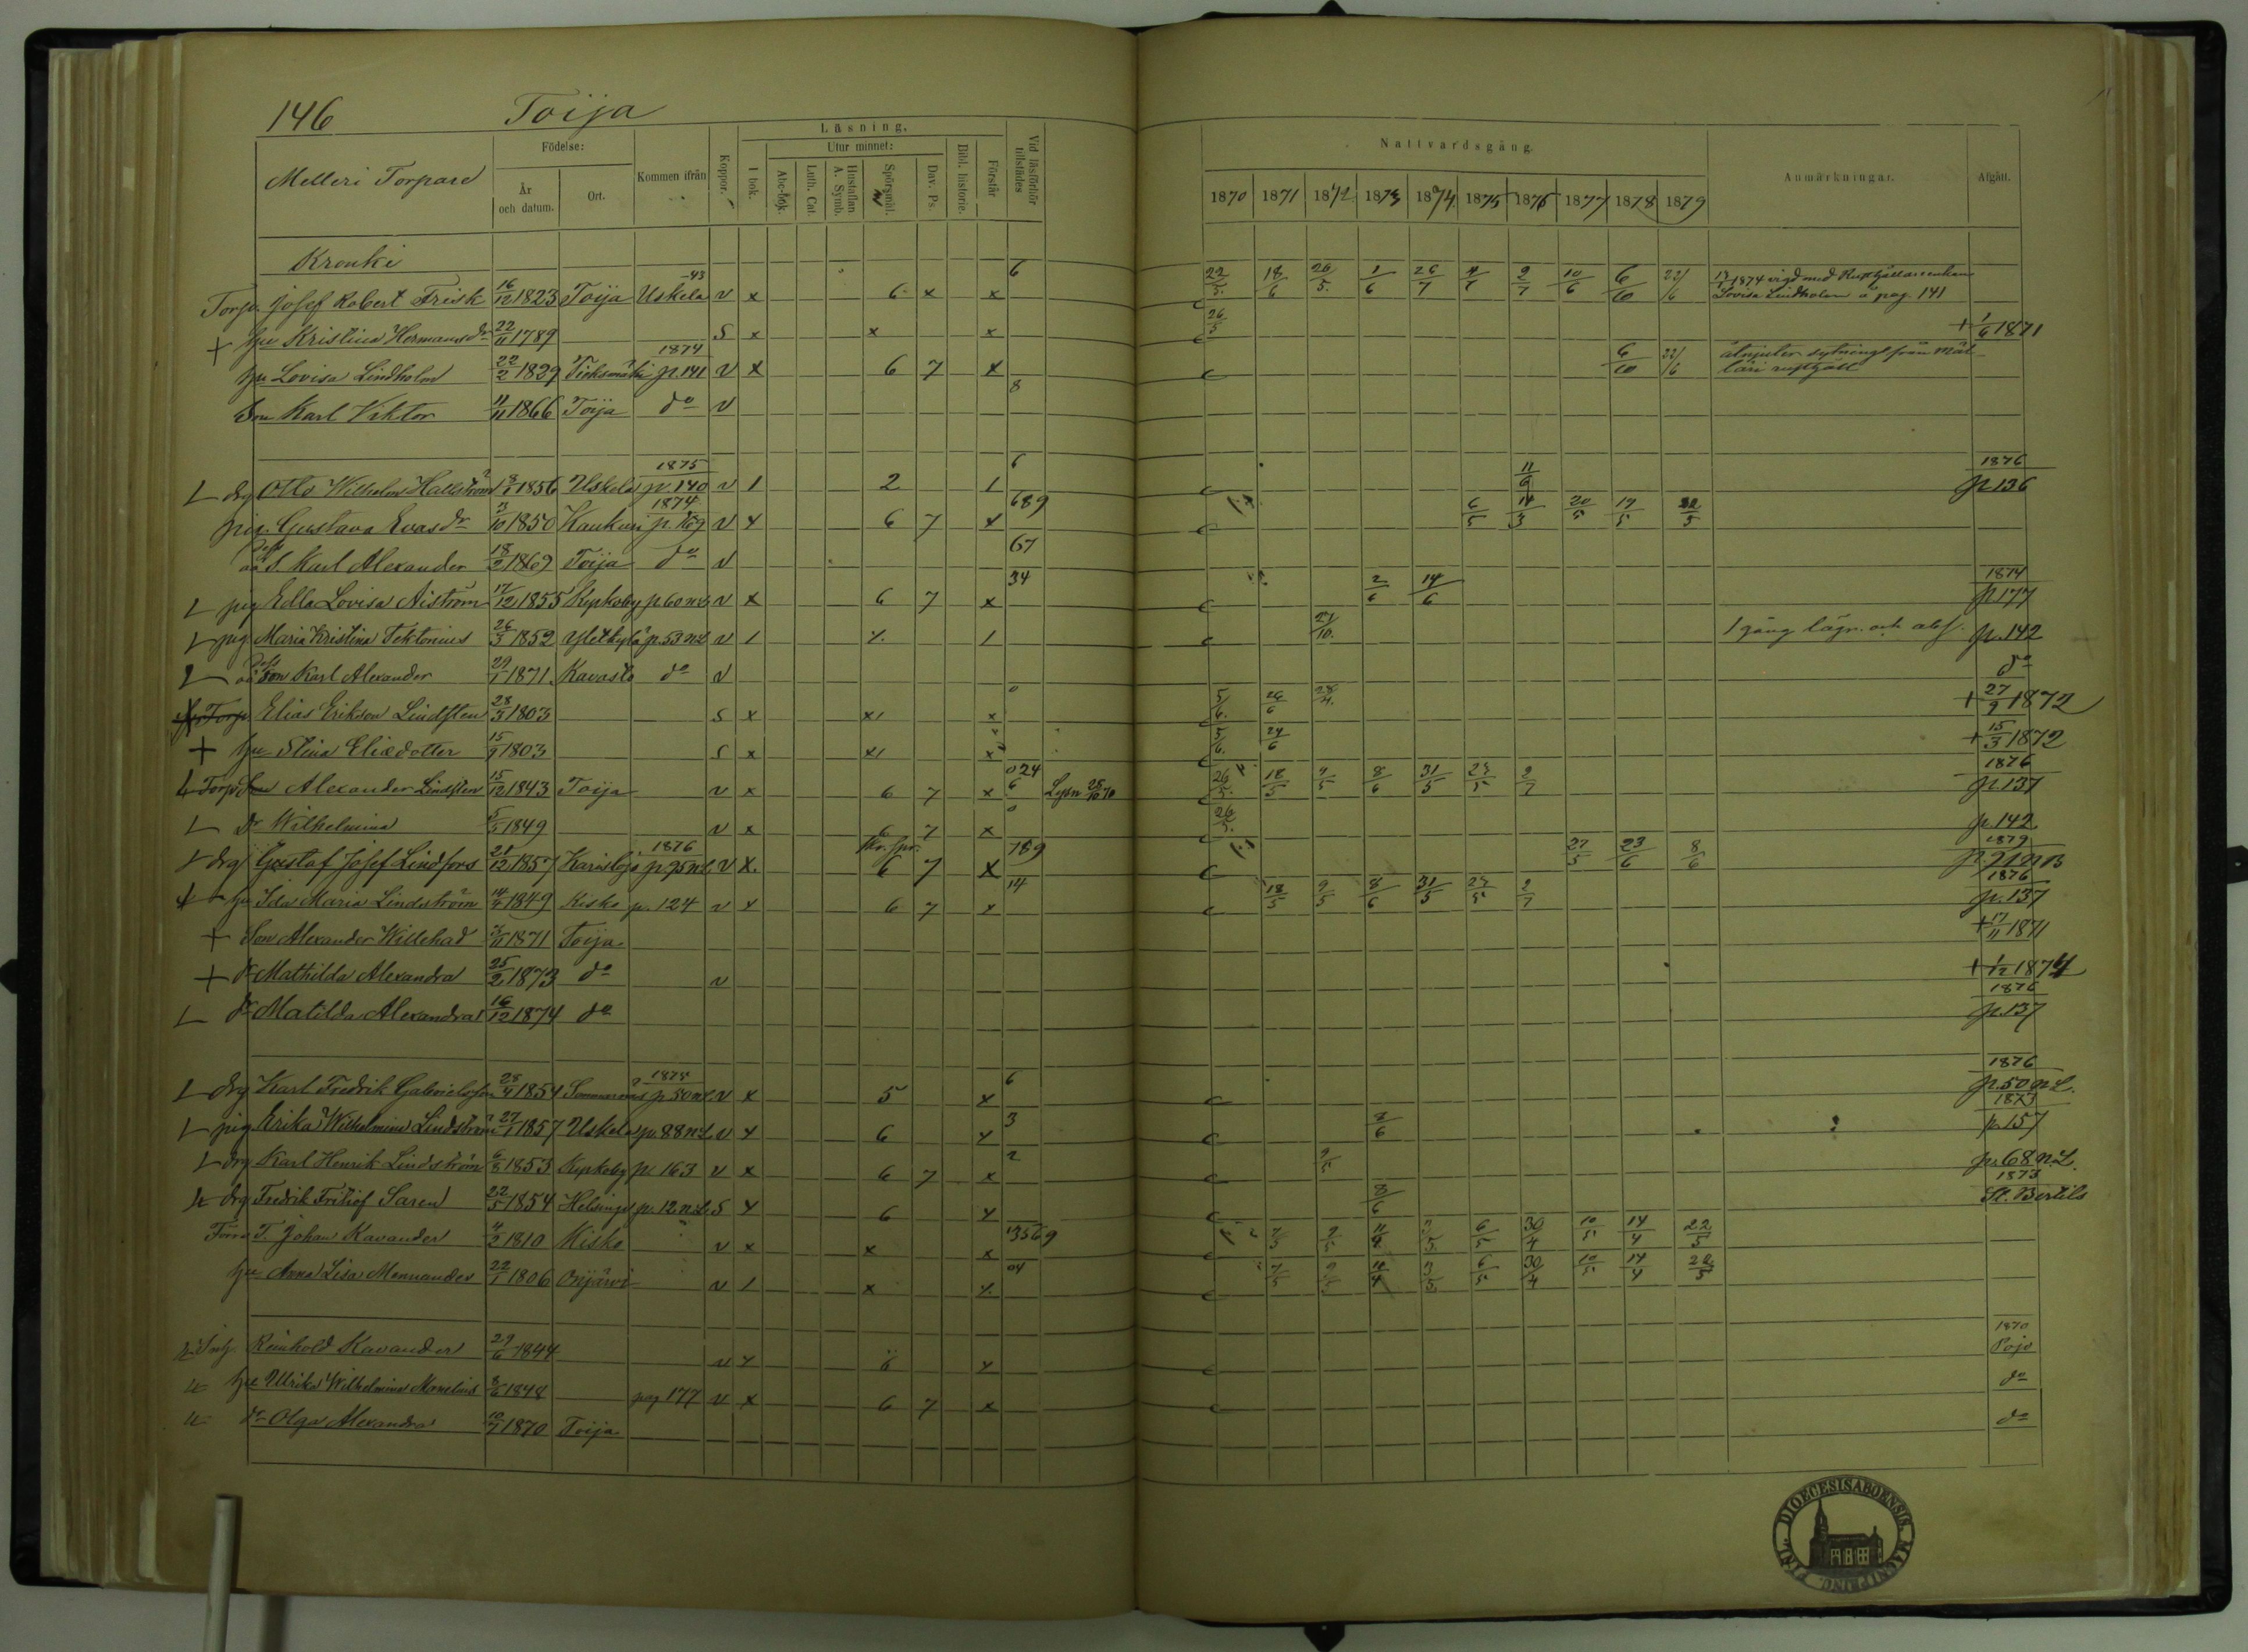 146 Toija
Melleri Torpare
Födelse:
År och datum.
Ort.
Kommen ifrån
Koppor.
Läsning.
I bok.
Utur minnet:
Abc-bok.
Luth. Cat.
Hustaflan A. Symb.
Spörsmål.
Dav. Ps.
Bibl. historie.
Förstår
Vid läsförhör tillstädes
Nattvardsgång
1870 1871 1872 1873 1874 1875 1876 1877 1878 1879
Anmärkningar.
Afgått.
Kronki
Torp. Josef Robert Frisk 16/12 1823 Toija Uskela -43 v x 6 x x 6 22/5 18/6 26/5 1/6 26/7 10/6 6/10 22/6 1874 vigd med Lovisa Lindholm å pag. 141
+ hu Kristina Hermansdr 22/11 1789 S x x x 26/5 + 1/6 1871
hu Lovisa Lindholm 22/2 1829 1874 p. 141 v x 6 7 x 6/10 22/6 åtnjuter sytning från
Son Karl Viktor 11/11 1866 Toija do v 8
drg Otto Wilhelm Hallström 1856 Uskela 1875 p. 140 v 1 2 1 6 1876 p 136
pig. Gustava Evasdr 1850 1874 v x 6 7 x 689 6/5 20/5 19/5 22/5
S. Karl Alexander 18/2 1869 Toija do v 67
pig Edla Lovisa Niström 17/12 1855 Kyrkoby p. 60 n.L. v x 6 7 x 34 2/6 14/6 1874 p. 177
pig. Maria Kristina Tektonius 26/3 1852 p. 53 n.L. v 1 1 27/10 1 gång lägr. och abs. p. 142
oä Son Karl Alexander 29/1 1871 Kavasto do v do
Torp. Elias Erikson Lindsten 28/3 1803 S x x1 x 0 5/6 26/6 28/4 + 27/9 1872
+ hu Stina Eliedotter 15/9 1803 S x x1 x 5/6 24/6 + 15/3 1872
Torp Son Alexander Lindsten 15/12 1843 Toija v x 6 7 x 024 6 26/5 18/5 9/5 8/6 31/5 23/5 2/7 1876 p. 137
Dr Wilhelmina 5/5 1849 v x 6 7 x 0 26/5 p. 142
drg Gustaf Josef Lindfors 21/12 1857 Karislojo 1876 p. 95 n.L. v x 6 7 x 789 27/5 23/6 8/6 1879
hu Ida Maria Lindström 14/9 1849 Kisko p. 124 v x 6 7 x 14 18/5 9/5 8/6 31/5 23/5 2/7 1876 p. 137
+ Son Alexander Willehad 1871 Toija + 17/11 1871
+ dr Mathilda Alexandra 25/2 1873 do v + 1/12 1874
dr Matilda Alexandra 16/12 1874 do 1876 p. 137
drg Karl Fredrik Gabrielsson 25/4 1854 1875 p. 50 n.L. v x 5 x 6 1876 p. 50 n.L.
pig Erika Wilhelmina Lindström 27/1 1857 Uskela p. 88 n.L. v x 6 x 3 8/6 1873 p. 157
drg Karl Henrik Lindström 6/8 1853 Kyrkoby p. 163 v x 6 7 x 2 9/5 p. 68 n.L.
drg Fredrik Fritiof Saren 22/5 1854 Helsinge p. 12 n.L. S x 6 x 8/6 1873 St. Bertils
T. Johan Kavander 4/2 1810 Kisko v x x x 13569 7/5 9/5 11/4 3/5 6/5 30/4 10/5 14/4 22/5
hu Anna Lisa Mennander 22/1 1806 Orijärvi v 1 x 04 7/5 9/5 11/4 3/5 6/5 30/4 10/5 14/4 22/5
Reinhold Kavander 29/6 1844 v x 6 x 1870 Pojo
hu Ulrika Wilhelmina 8/6 1848 pag 177 v x 6 7 x do
dr Olga Alexandra 10/7 1870 Toija do
DIOECESIS ABOENSIS. MAGNI PRINC. FINL.